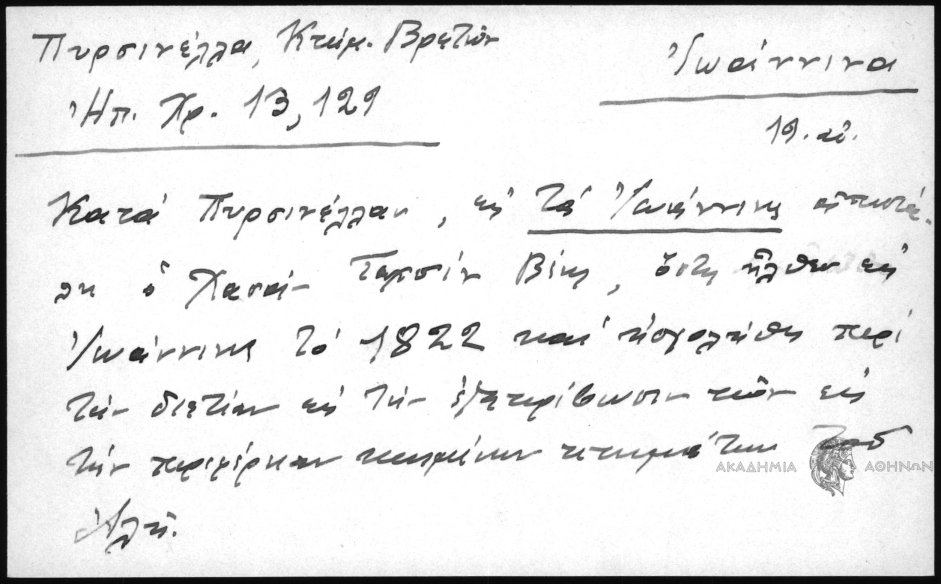 Πυρσινέλλα, Κτημ. Βρετών
Ἠπ. Χρ. 13, 129
Ἰωάννινα
19. αἰ.
Κατὰ Πυρσινέλλαν, εἰς τὰ Ἰωάννινα ἀπεστά-
λη ὁ Χασὰν Ταχσὶν Βέης, ὅστις ἦλθεν εἰς
Ἰωάννινα τὸ 1822 καὶ ἠσχολήθη περὶ
τὴν διετίαν εἰς τὴν ἐξακρίβωσιν τῶν εἰς
τὴν περιφέρειαν κειμένων κτημάτων τοῦ
Ἀλῆ.
ΑΚΑΔΗΜΙΑ ΑΘΗΝΩΝ